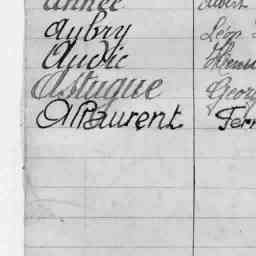 Année Albert
Aubry Léon
Audic
Astugue Georg
Allaurent Fern